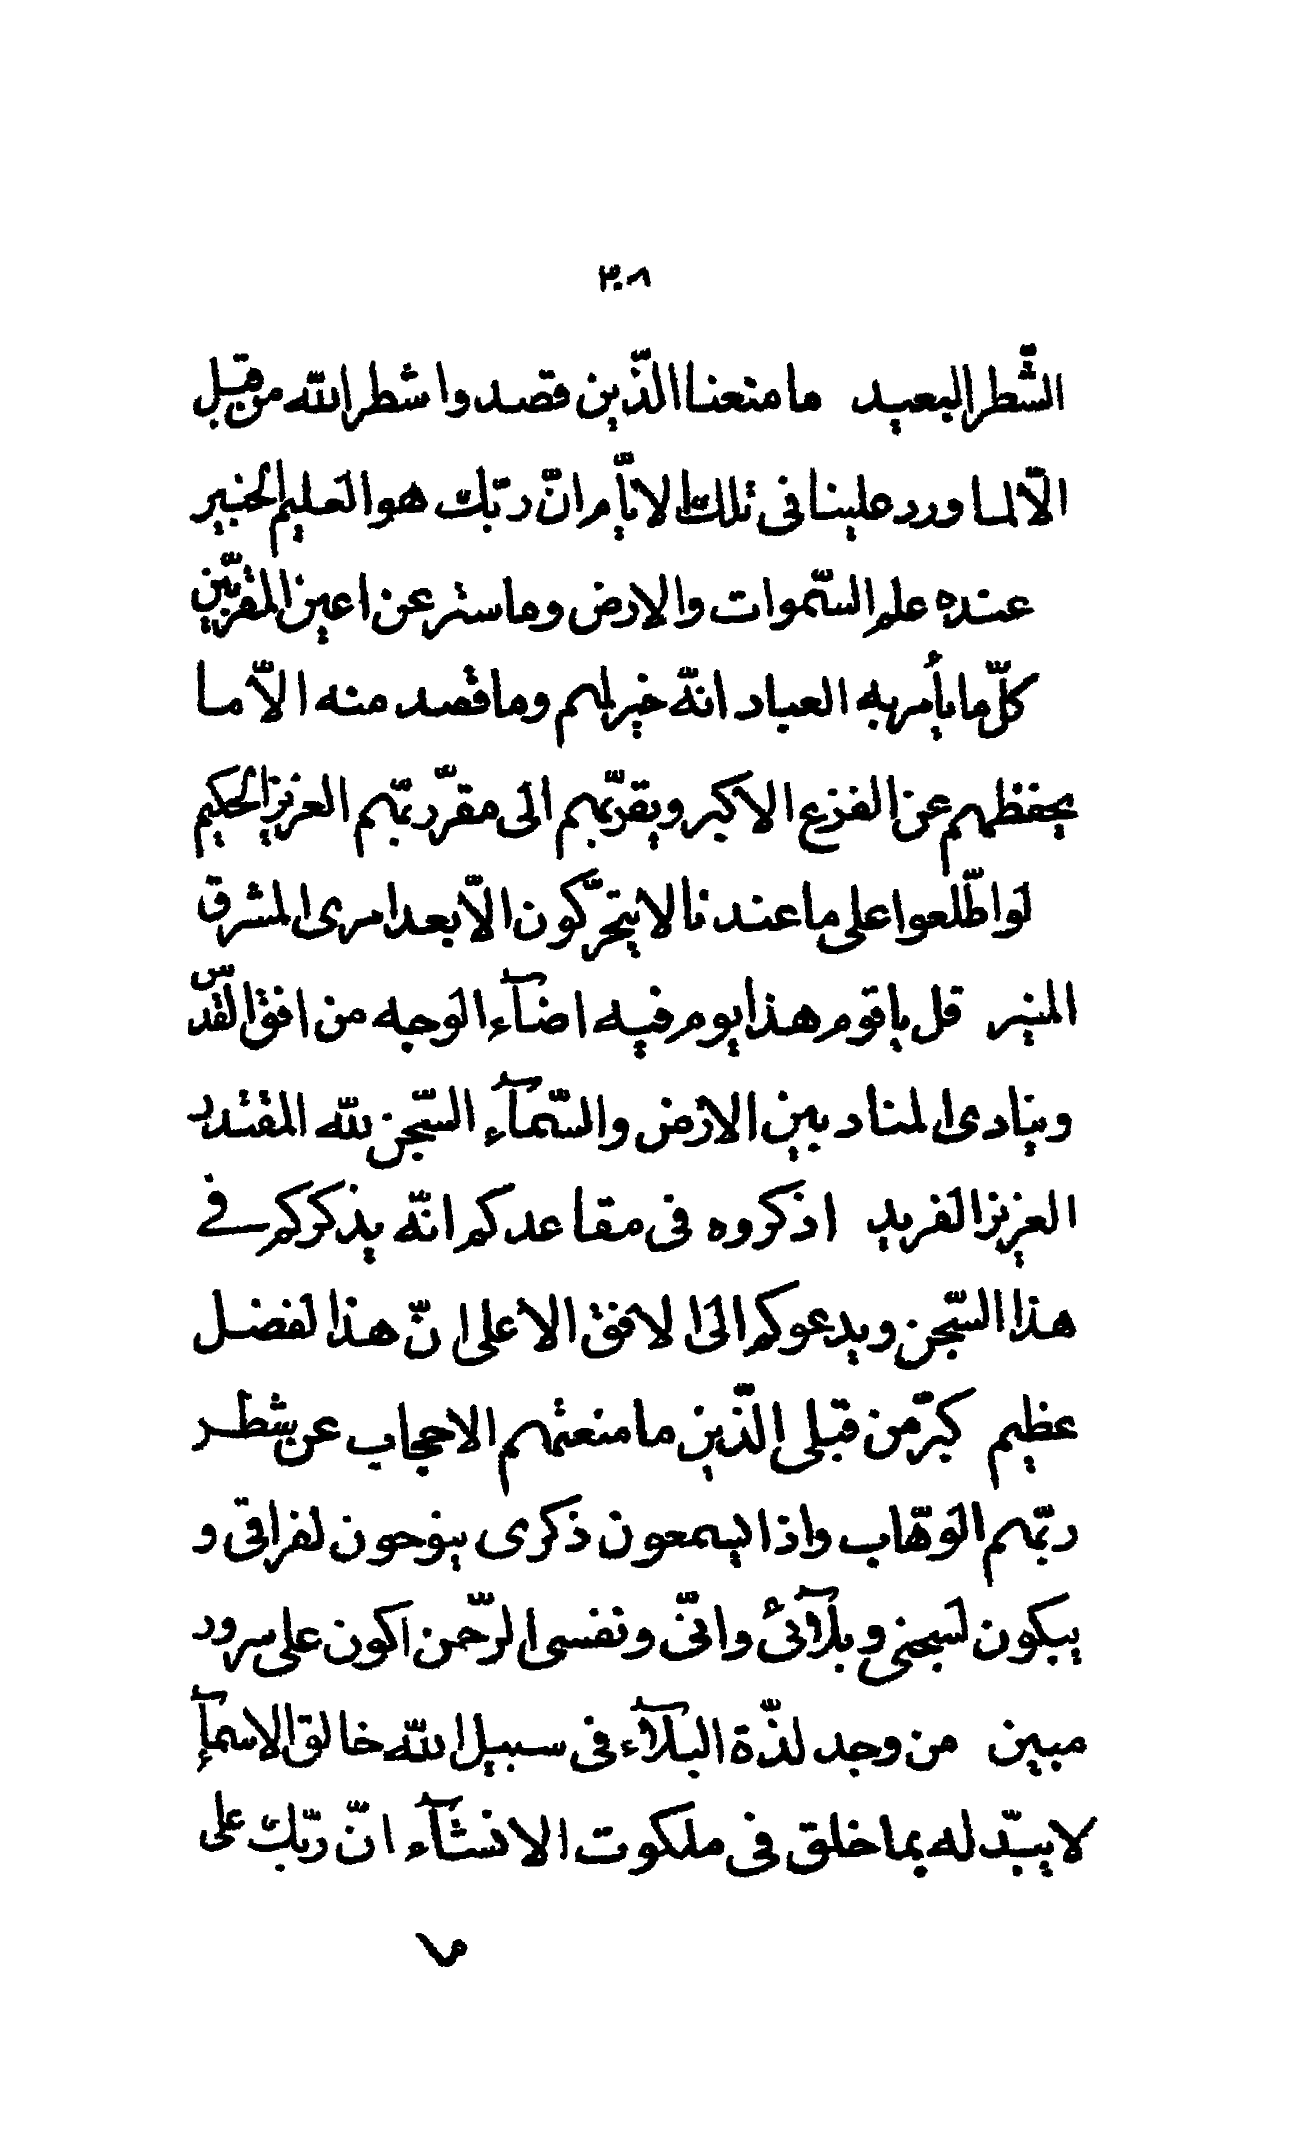 ٣٠٨
الشّطر البعيد ما منعنا الّذين قصدوا شطر اللّه من قبل
الّا لما ورد علينا فى تلك الايّام انّ ربّك هو العليم الخبير
عنده علم السّموات والارض وما ستر عن اعين المقرّبين
كلّ ما يأمر به العباد انّه خير لهم وما قصد منه الّا ما
يحفظهم عن الفزع الاكبر ويقرّبهم الى مقرّ ربّهم العزيز الحكيم
لو اطّلعوا على ما عندنا لا يتحرّكون الّا بعد امرى المشرق
المنير قل يا قوم هذا يوم فيه اضآء الوجه من افق القدّس
وينادى المناد بين الارض والسّمآء السّجن للّه المقتدر
العزيز الفريد اذكروه فى مقاعدكم انّه يذكركم فى
هذا السّجن ويدعوكم الى الافق الاعلى انّ هذا لفضل
عظيم كبّر من قبلى الّذين ما منعتهم الاحجاب عن شطر
ربّهم الوهّاب واذا يسمعون ذكرى ينوحون لفراقى و
يبكون لسجنى وبلآئى وانّى ونفسى الرّحمن اكون على سرور
مبين من وجد لذّة البلآء فى سبيل اللّه خالق الاسمآء
لا يبدّله بما خلق فى ملكوت الانشآء انّ ربّك على